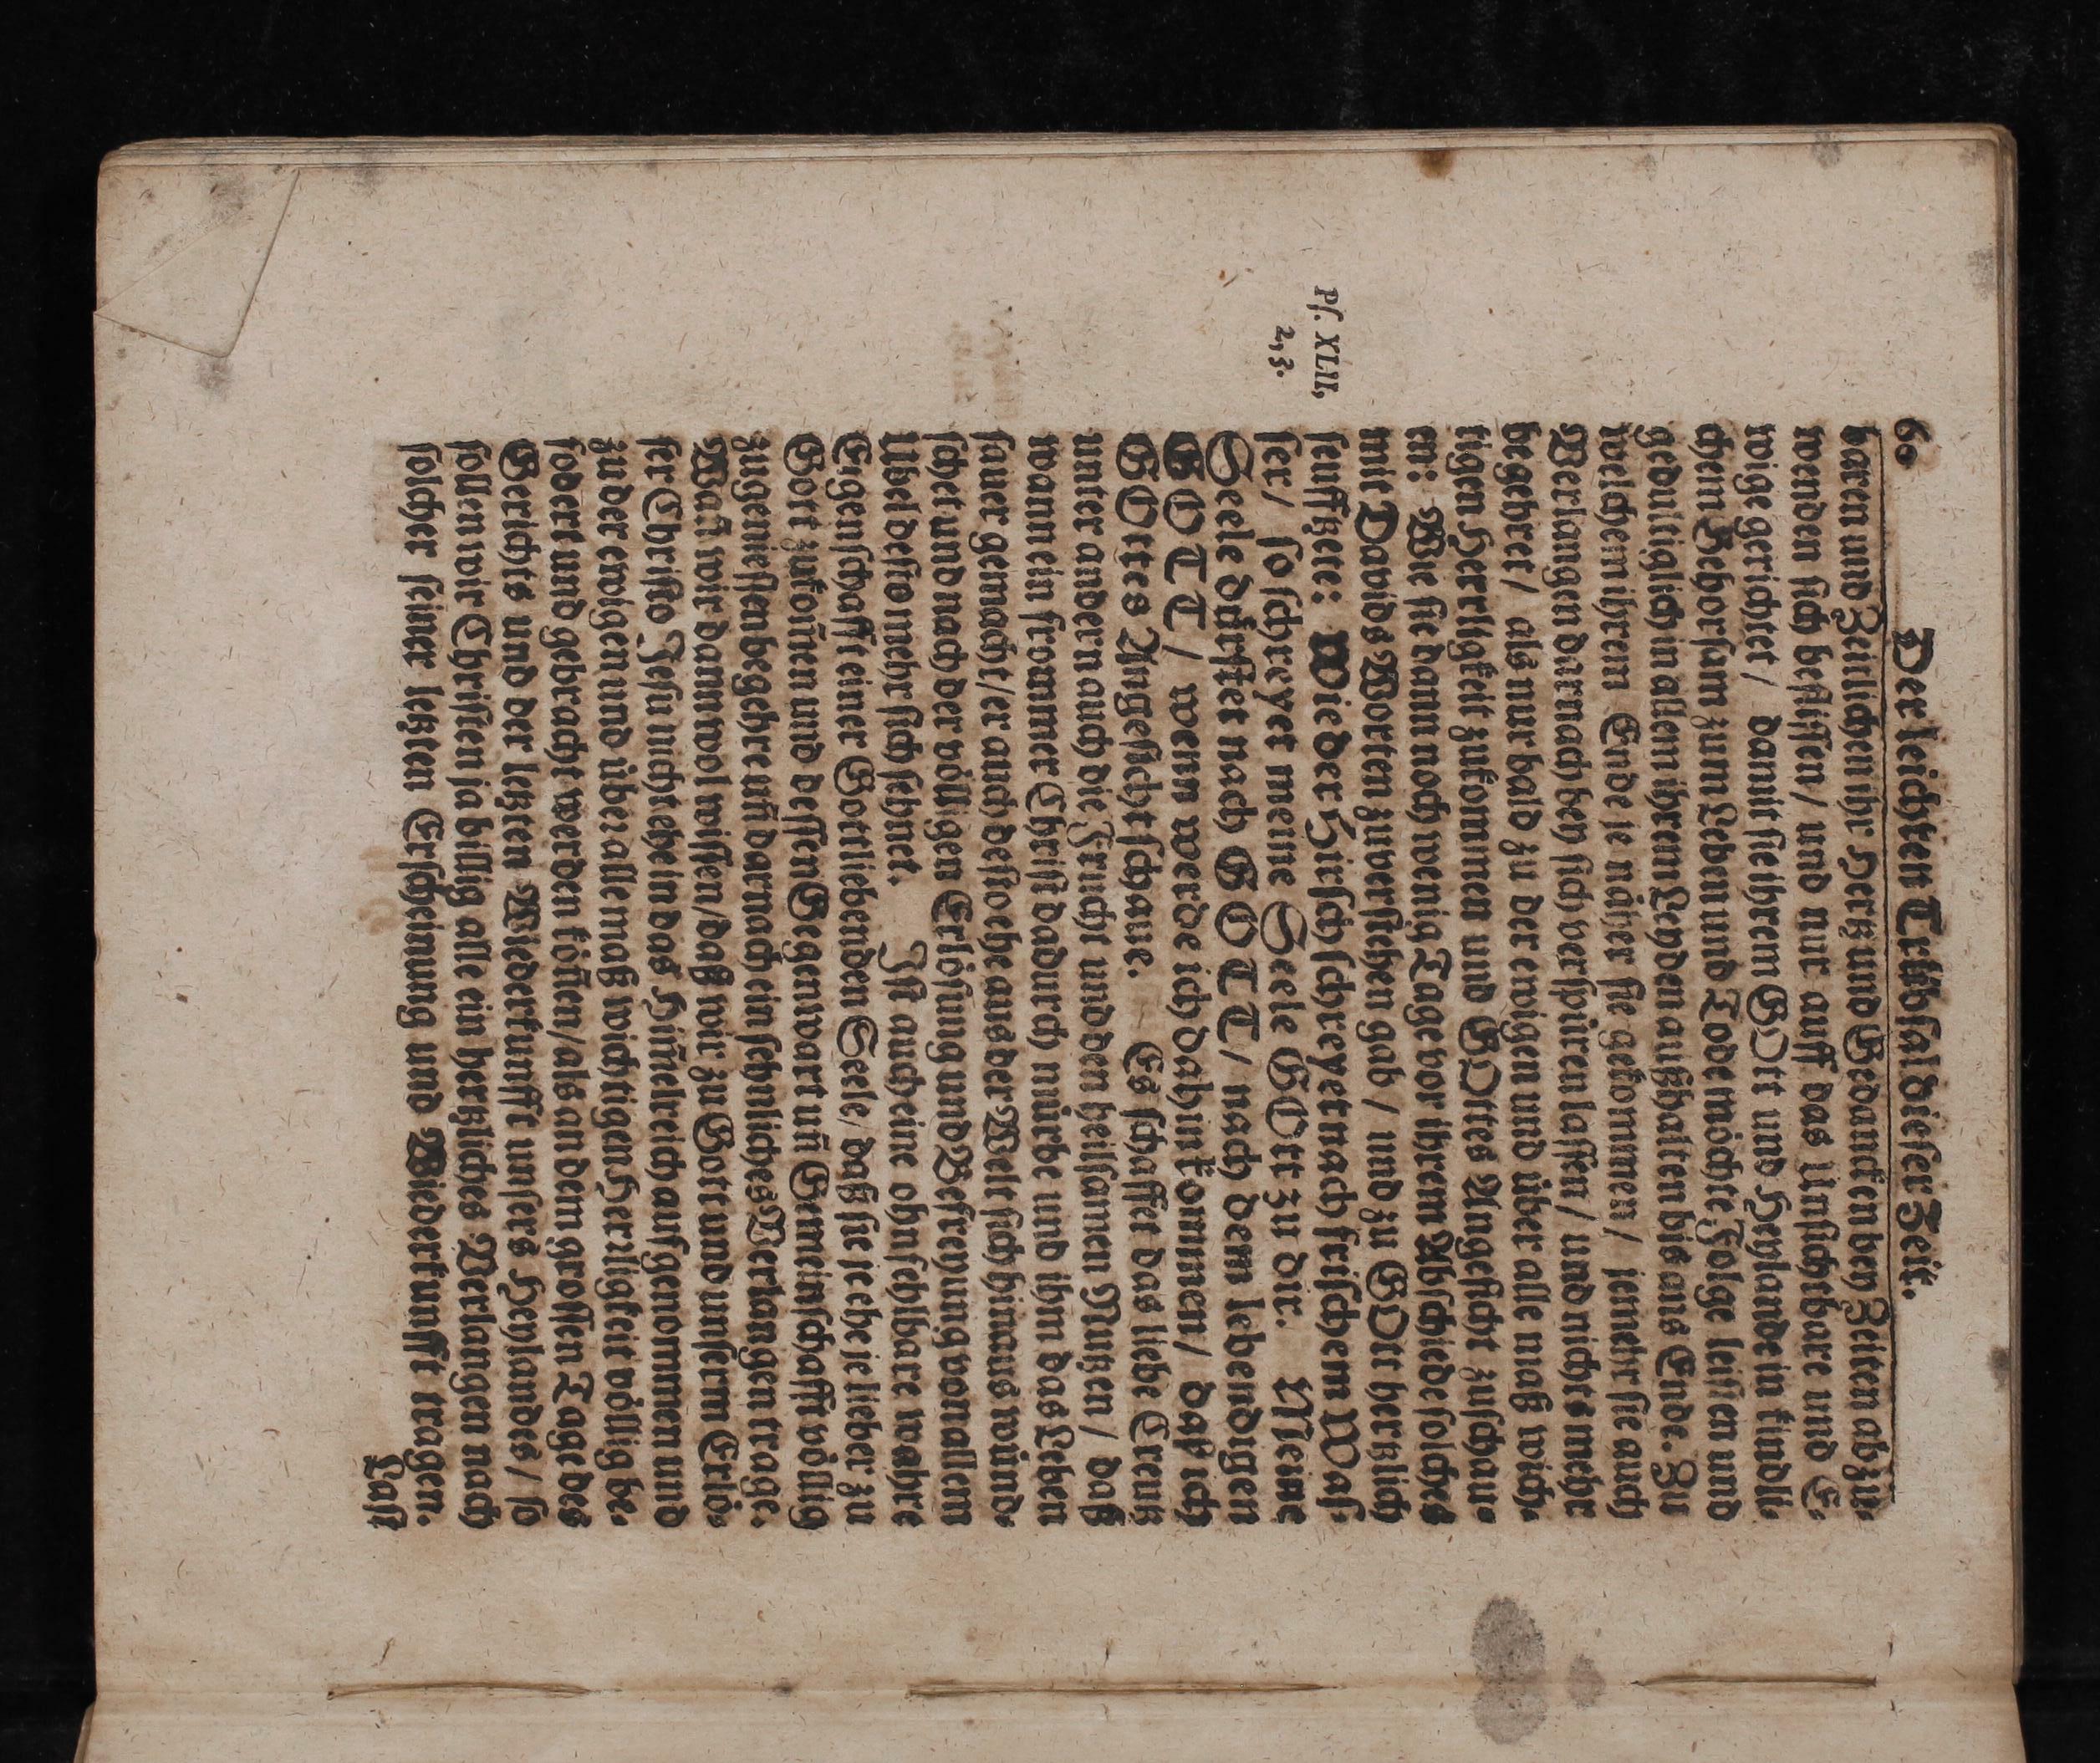 60 Der leichten Trübsal dieser Zeit.
barem und Zeitlichen ihr Hertz und Gedancken bey Zeiten abzu-
wenden sich beflissen / und nur auff das Unsichtbare und E-
wige gerichtet / damit sie ihrem GOtt und Heylande in kindli-
chem Gehorsam zum Leben und Tode möchte Folge leisten und
gedultiglich in allem ihrem Leyden außhalten bis ans Ende. Zu
welchem ihrem Ende je näher sie gekommen / jemehr sie auch
Verlangen darnach bey sich verspüren lassen / und nichts mehr
begehret / als nur bald zu der ewigen und über alle maß wich-
tigen Herrligkeit zukommen und GOttes Angesicht zuschau-
en: Wie sie dann noch wenig Tage vor ihrem Abschiede solches
mit Davids Worten zuverstehen gab / und zu GOtt hertzlich
seufftzete: Wie der Hirsch schreyet nach frischem Was-
ser / so schreyet meine Seele GOtt zu dir. Meine
Seele dürstet nach GOTT / nach dem lebendigen
GOTT / wenn werde ich dahin kommen / daß ich
GOttes Angesicht schaue. Es schaffet das liebe Creutz
unter andern auch die Frucht und den heilsamen Nutzen / daß
wann ein frommer Christ dadurch mürbe und ihm das Leben
sauer gemacht / er auch desto ehe aus der Welt sich hinaus wünd-
schet und nach der völligen Erlösung und Befreyung von allem
Übel desto mehr sich sehnet. Ist auch eine ohnfehlbare wahre
Eigenschafft einer Gottliebenden Seele / daß sie je ehe je lieber zu
Gott zukom̃en und dessen Gegenwart un̄ Gemeinschafft völlig
zugeniessen begehre un̄ darnach ein sehnliches Verlangen trage.
Wañ wir dann wol wissen / daß wir zu Gott und unserm Erlö-
ser Christo Jesu nicht ehe in das Him̃elreich aufgenommen und
zu der ewigen und über alle maß wichtigen Herrligkeit völlig be-
fodert und gebracht werden kön̄en / als an dem grossen Tage des
Gerichts und der letzten Wiederkunfft unsers Heylandes / so
sollen wir Christen ja billig alle ein hertzliches Verlangen nach
solcher seiner letzten Erscheinung und Wiederkunfft tragen.
Last
Ps. XLII,
2, 3.